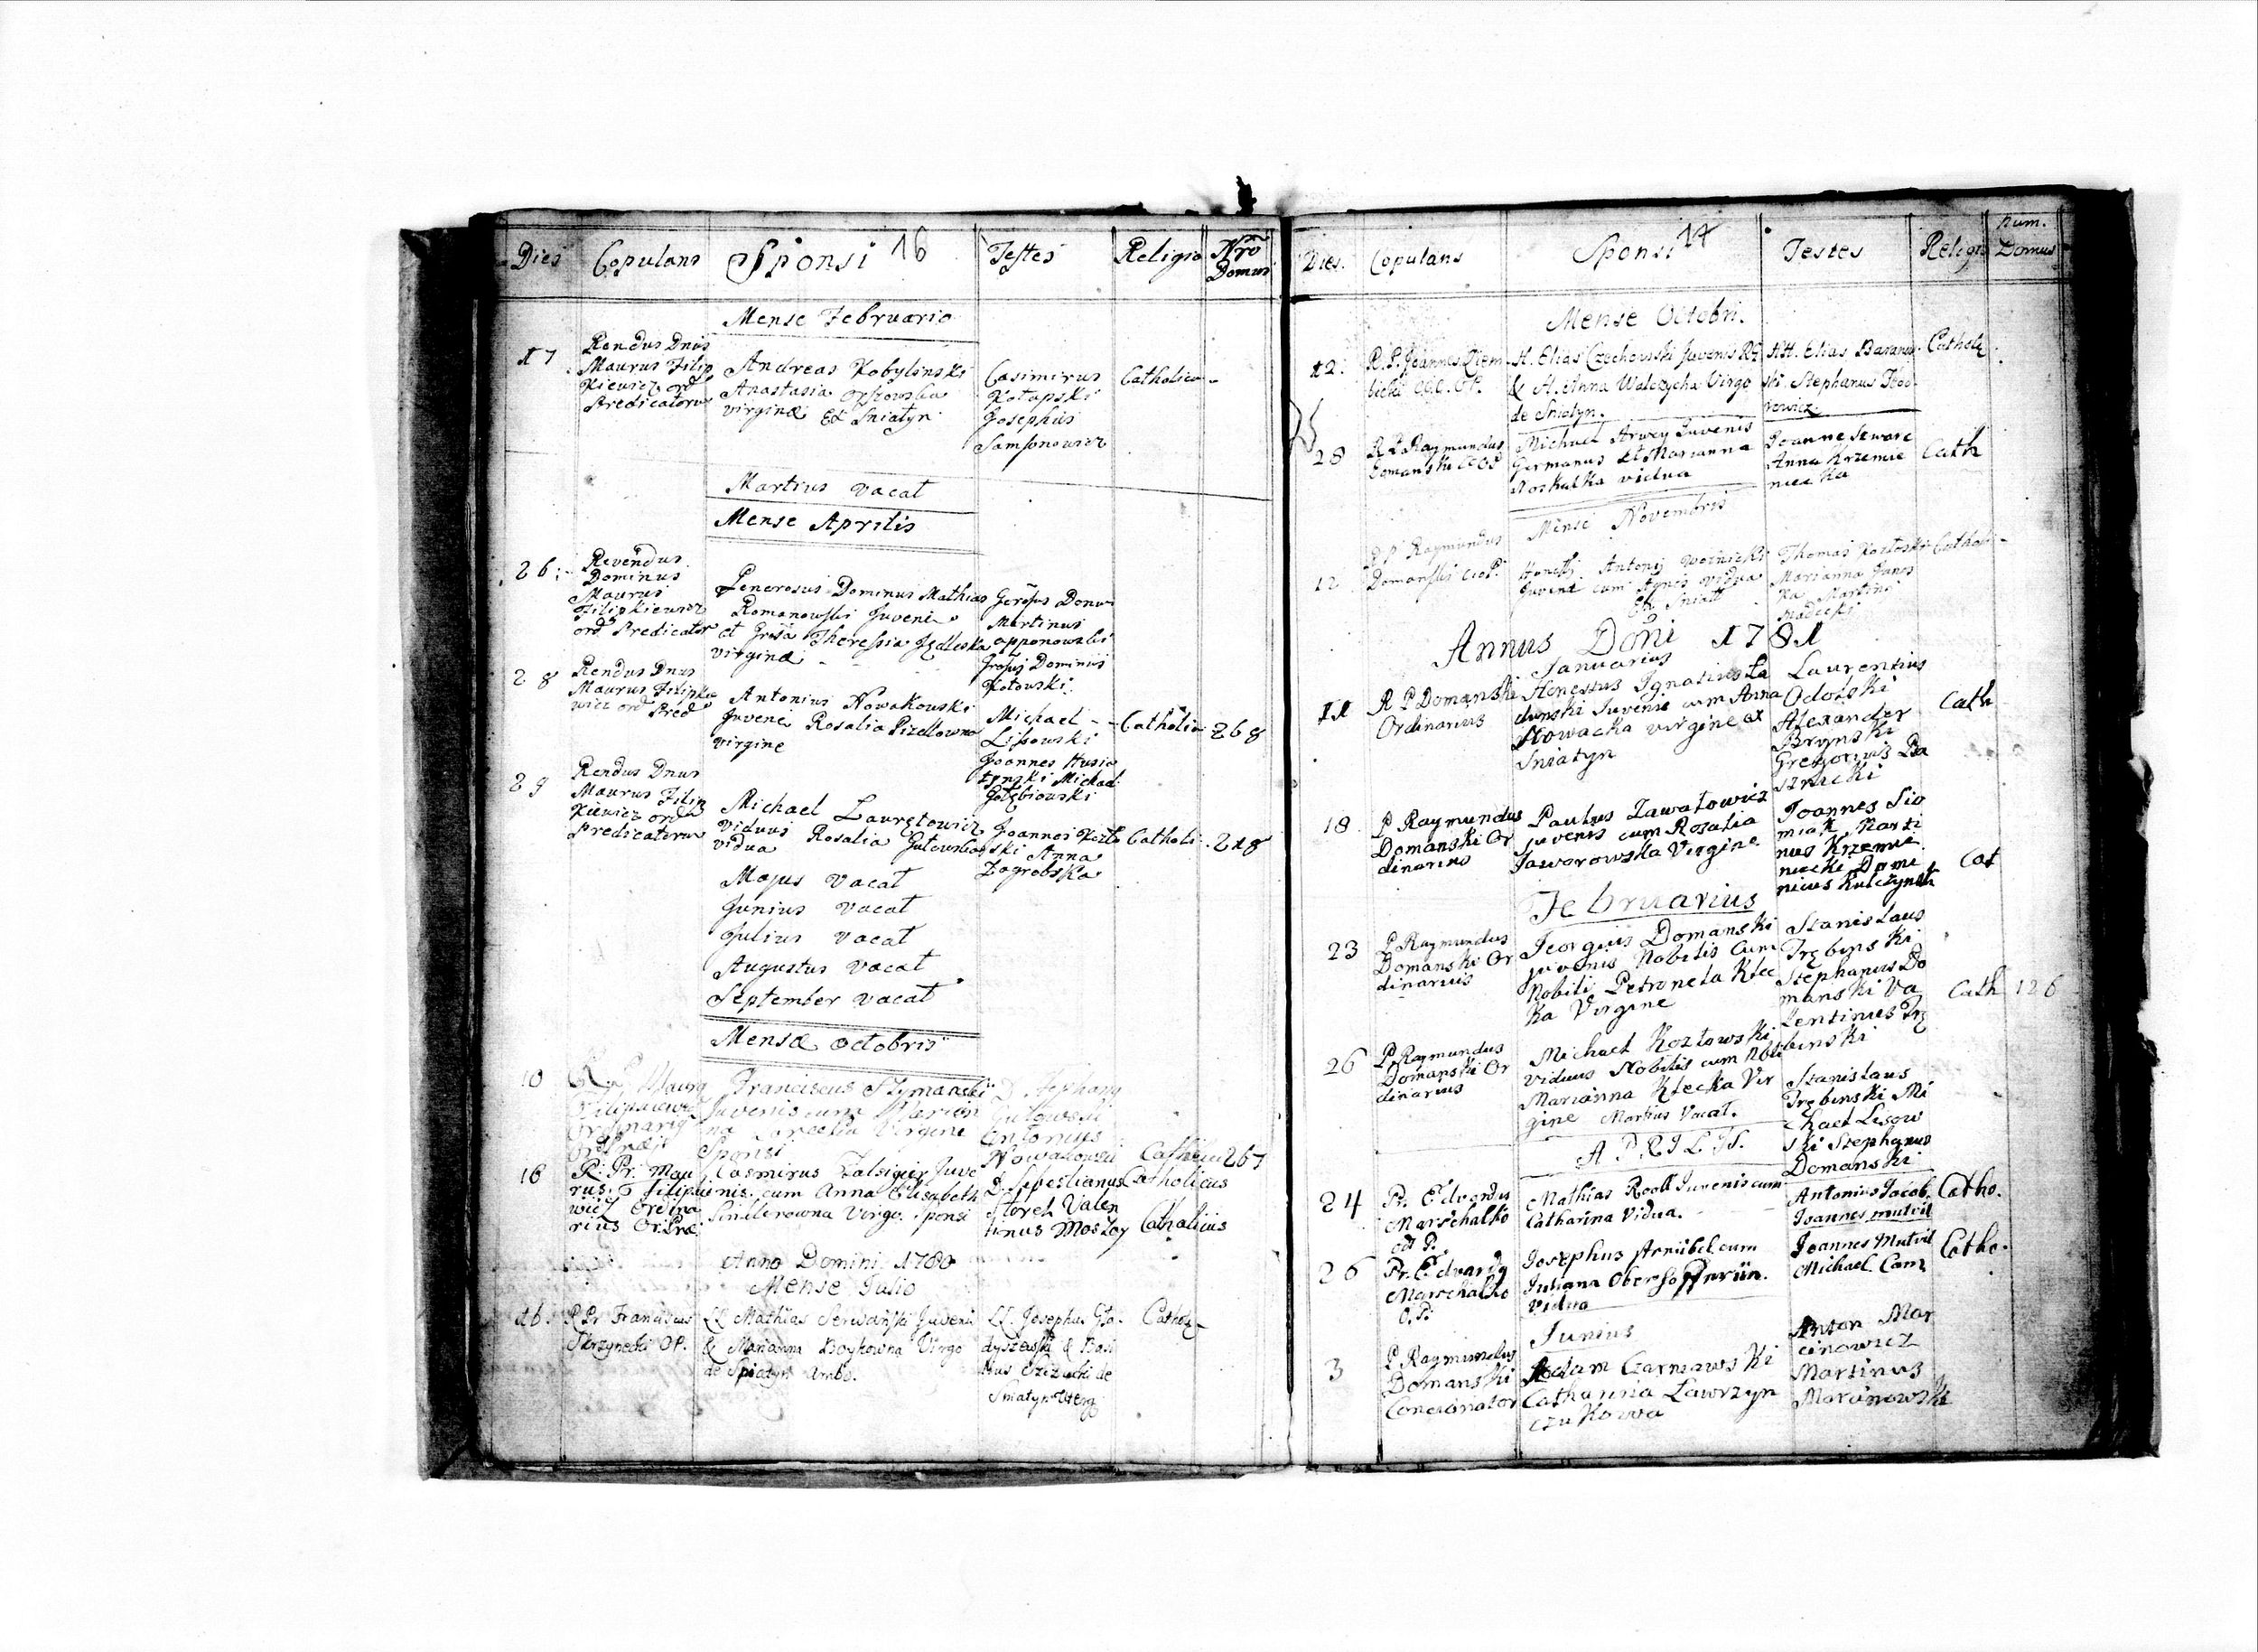 Dies Copulans Sponsi 16 Testes Religio Nrō Domus
Mense Februario
17
Rendus Dnus
Maurus Filip
kiewicz ord
Predicatorū
Andreas Kobylinski
Anastasia
virginæ Ex Sniatyn
Casimirus
Kotapski
Josephus
Samsonowicz
Catholica
Martius vacat
Mense Aprilis
26
Revendus
Dominus
Maurus
Filipkiewicz
ord Predicator
Generosus Dominus Mathias
Romanowski Juvenis
et Theressia
virginæ
Martinus
Dominus
Kotowski
28
Rendus Dnus
Maurus Filipkie
wicz ord Pred
Antonius Nowakowski
Juvenis Rosalia
virgine
Michael
Lissowski
Joannes Husia
tynski Michael
Gołębiowski
Catholic 268
29
Rendus Dnus
Maurus Filip
kiewicz ord
Predicatorum
Michael Lauretowicz
viduus Rosalia Gutowska
vidua
Joannes Kozło
ski Anna
Zagrobska
Catholi 218
Majus vacat
Junius vacat
Julius vacat
Augustus vacat
September vacat
Mensæ octobris
10
Franciscus Szymanski
Juvenis cum
Virgine
Sponsi
Antonius
Nowakowski
267
16
R. Pr. Mau
rus Filipkie
wicz Ordina
rius Or. Præ
Casmirus Juve
nis cum Anna Elisabeth
Virgo Sponsi
D. Sebestianus
Valen
tinus
Catholicus
Catholicus
Anno Domini 1780
Mense Julio
16.
R Pr Franciscus
O.P.
Mathias Juvenis
& Marianna Boykowna Virgo
de Sniatyn Ambo.
Josephus
dyszewski & Basi
lius de
Sniatyn
Cathol
Dies. Copulans Sponsi 17 Testes Religio Num. Domus
Mense Octobri.
12.
R. P. Joannes
H. Elias Czechowski Juvenis
& H. Anna Walczycha Virgo
de Sniatyn.
HH. Elias Baranow
ski. Stephanus Teod
rowicz.
Cathol
28
R P Raymundus
Domanski
Michael Juvenis
Germanus et Marianna
vidua
Joanne
Anna Krzemie
niecka
Cath
Mense Novembris
12
R P Raymundus
Domanski
Antonij
Juvene cum Agnes vidua
Ex Sniatt
Thomas Kozłoski
Marianna Janos
ka Martini
Catholi
Annus Doñi 1781
Januarius
11
R P Domanski
Ordinarius
Honestus Ignatius La
dunski Juvenis cum Anna
Nowacka virgine ex
Sniatyn
Laurentius
Odolski
Alexander
Brynski
Gregorius Ba
Cath
18
P Raymundus
Domanski Or
dinarius
Paulus Zawałowicz
juvenis cum Rosalia
Jaworowska Virgine
Joannes Sio
miak Marti
nus Krzemie
niecki Domi
nicus Kulczynski
Cat
Februarius
23
P Raymundus
Domanski Or
dinarius
Georgius Domanski
juvenis Nobilis cum
Nobili Petronela Klec
ka Virgine
Stanislaus
Trębinski
Stephanus Do
manski Va
lentinus Trę
binski
Cath 126
26
P Raymundus
Domanski Or
dinarius
Michael Kozłowski
viduus Nobilis cum Nobi
Marianna Klecka Vir
gine Martius Vacat.
Stanislaus
Trębinski Mi
chael Lesow
ski Stephanus
Domanski
APRILIS.
24
Pr. Edvardus
Marschalko
Mathias Rooll Juvenis cum
Catharina Vidua.
Antonius Jacob.
Joannes Mutvil
Catho.
26
Pr. Edvardus
Marschalko
O. P.
Josephus cum
Juliana
Vidua
Joannes Mutvil
Michael Cam
Catho.
Junius
3
P Raymundus
Domanski
Concionator
Adam Czarniawski
Catharina Lawrzyn
czukowa
Anton Mar
cinowicz
Martinus
Marcinowski